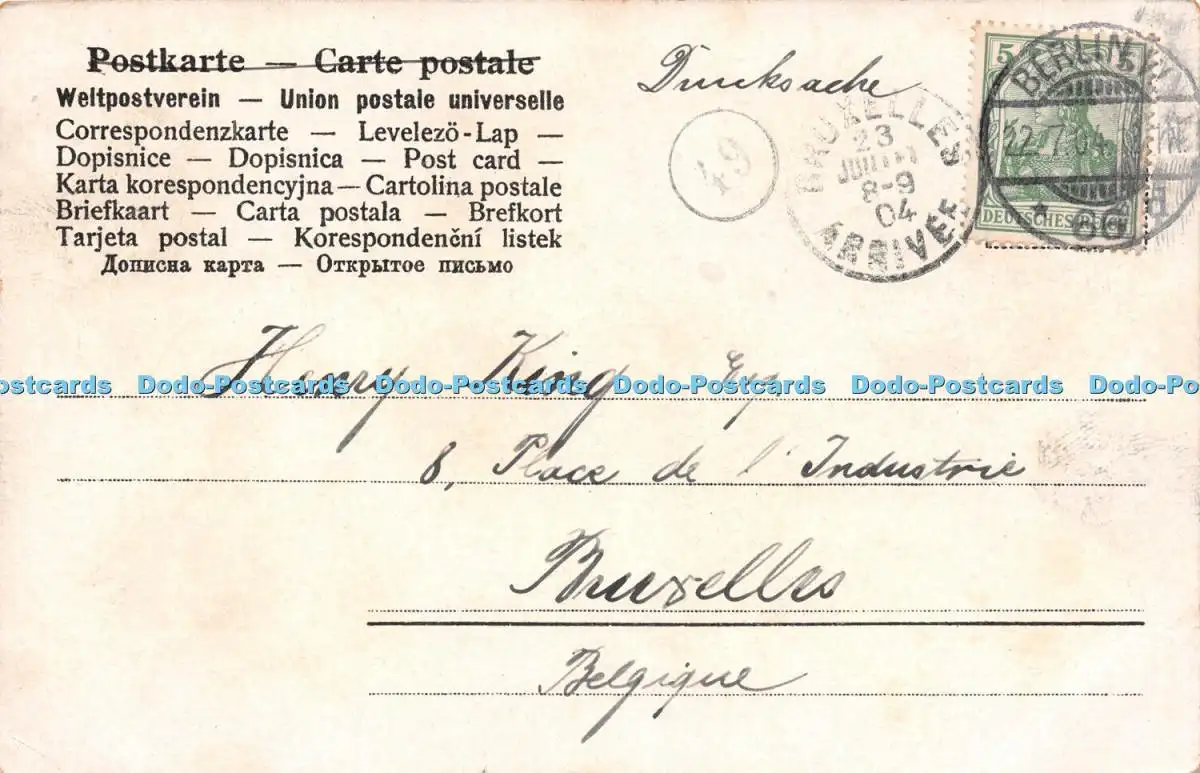 Postkarte — Carte postale
Weltpostverein — Union postale universelle
Correspondenzkarte — Levelező-Lap —
Dopisnice — Dopisnica — Post card —
Karta korespondencyjna — Cartolina postale
Briefkaart — Carta postala — Brefkort
Tarjeta postal — Korespondenční listek
Дописна карта — Открытое письмо
Drucksache
49
BRUXELLES
23
JUILLET
8-9
04
ARRIVEE
5 5
BERLIN W
22.7.04
DEUTSCHES REICH
Henry King Esq.
Dodo-Postcards Dodo-Postcards Dodo-Postcards Dodo-Postcards
8, Place de l'Industrie
Bruxelles
Belgique